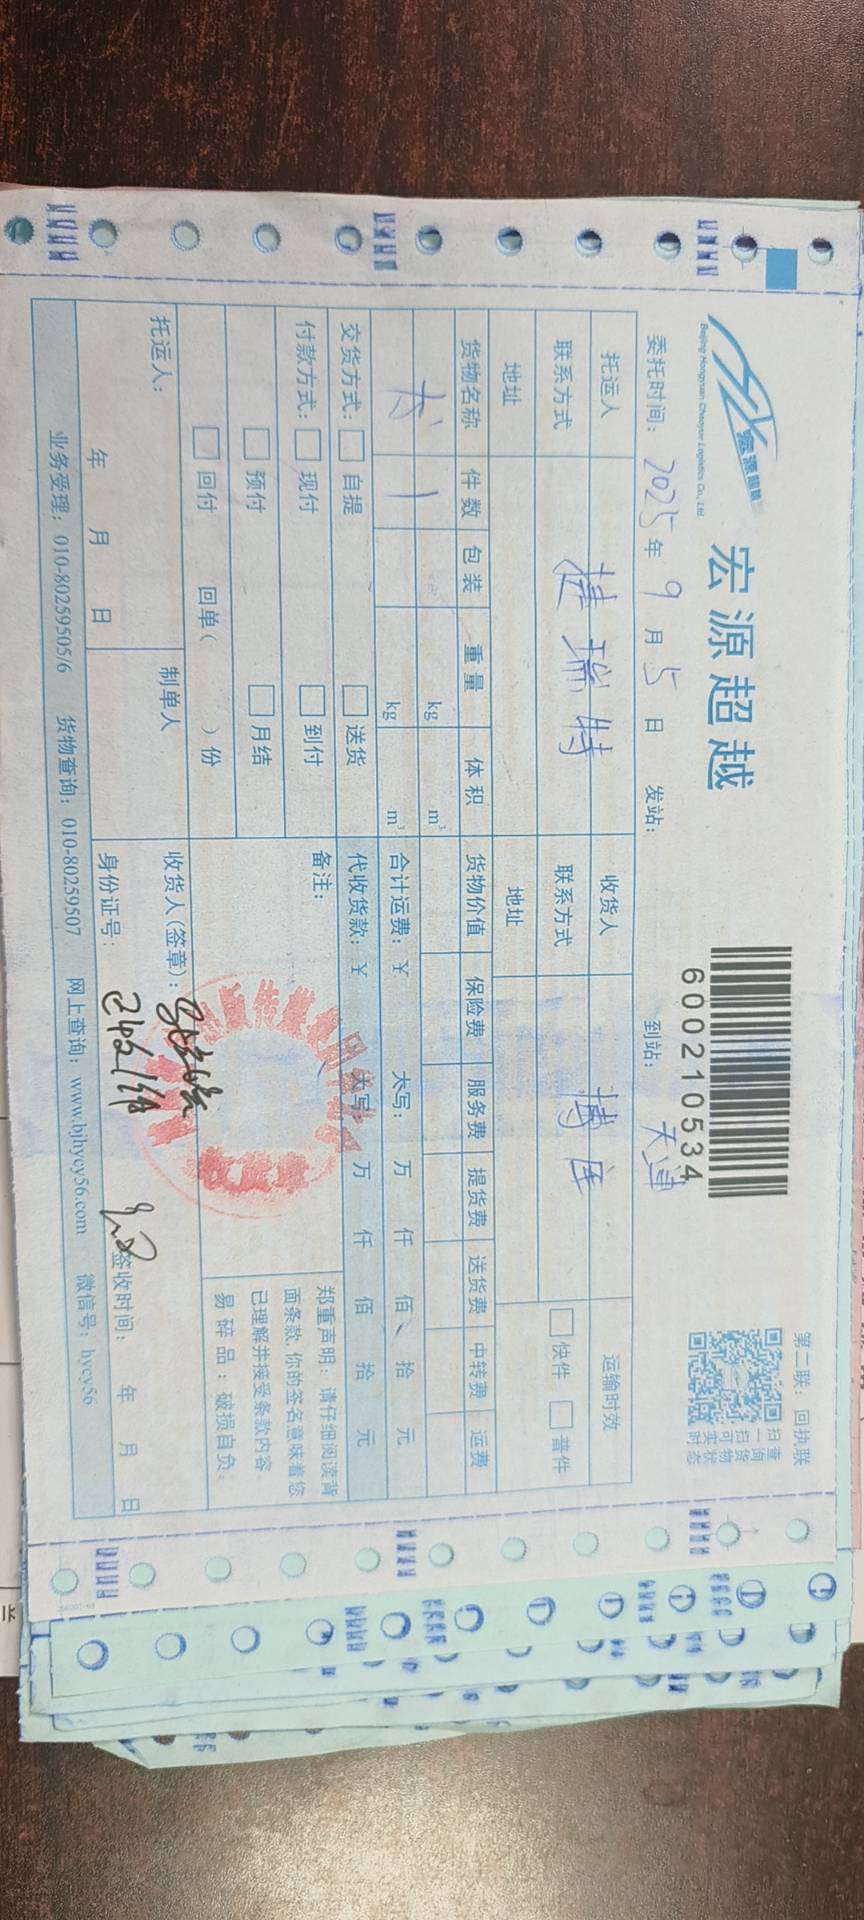 宏源超越
Beijing Hongyuan Chaoyue Logistics Co., Ltd.
宏源超越
600210534
第二联：回执联
扫一扫可实时
查询货物状态
委托时间：2025年9月5日 发站： 到站：天津
托运人 收货人 运输时效
联系方式 捷瑞特 联系方式 博连 快件 普件
地址 地址
货物名称 件数 包装 重量 体积 货物价值 保险费 服务费 提货费 送货费 中转费 运费
1 kg m³
kg m³ 合计运费：¥ 大写： 万 仟 佰 拾 元
交货方式： 自提 送货 代收货款：¥ 大写： 万 仟 佰 拾 元
付款方式： 现付 到付 备注：
预付 月结
回付 回单（ ）份
郑重声明：请仔细阅读背
面条款，你的签名意味着您
已理解并接受条款内容。
易碎品：破损自负。
托运人： 制单人 收货人(签章)：
年 月 日 身份证号： 已收1件 签收时间： 年 月 日
业务受理：010-80259505/6 货物查询：010-80259507 网上查询：www.bjhycy56.com 微信号：hycy56